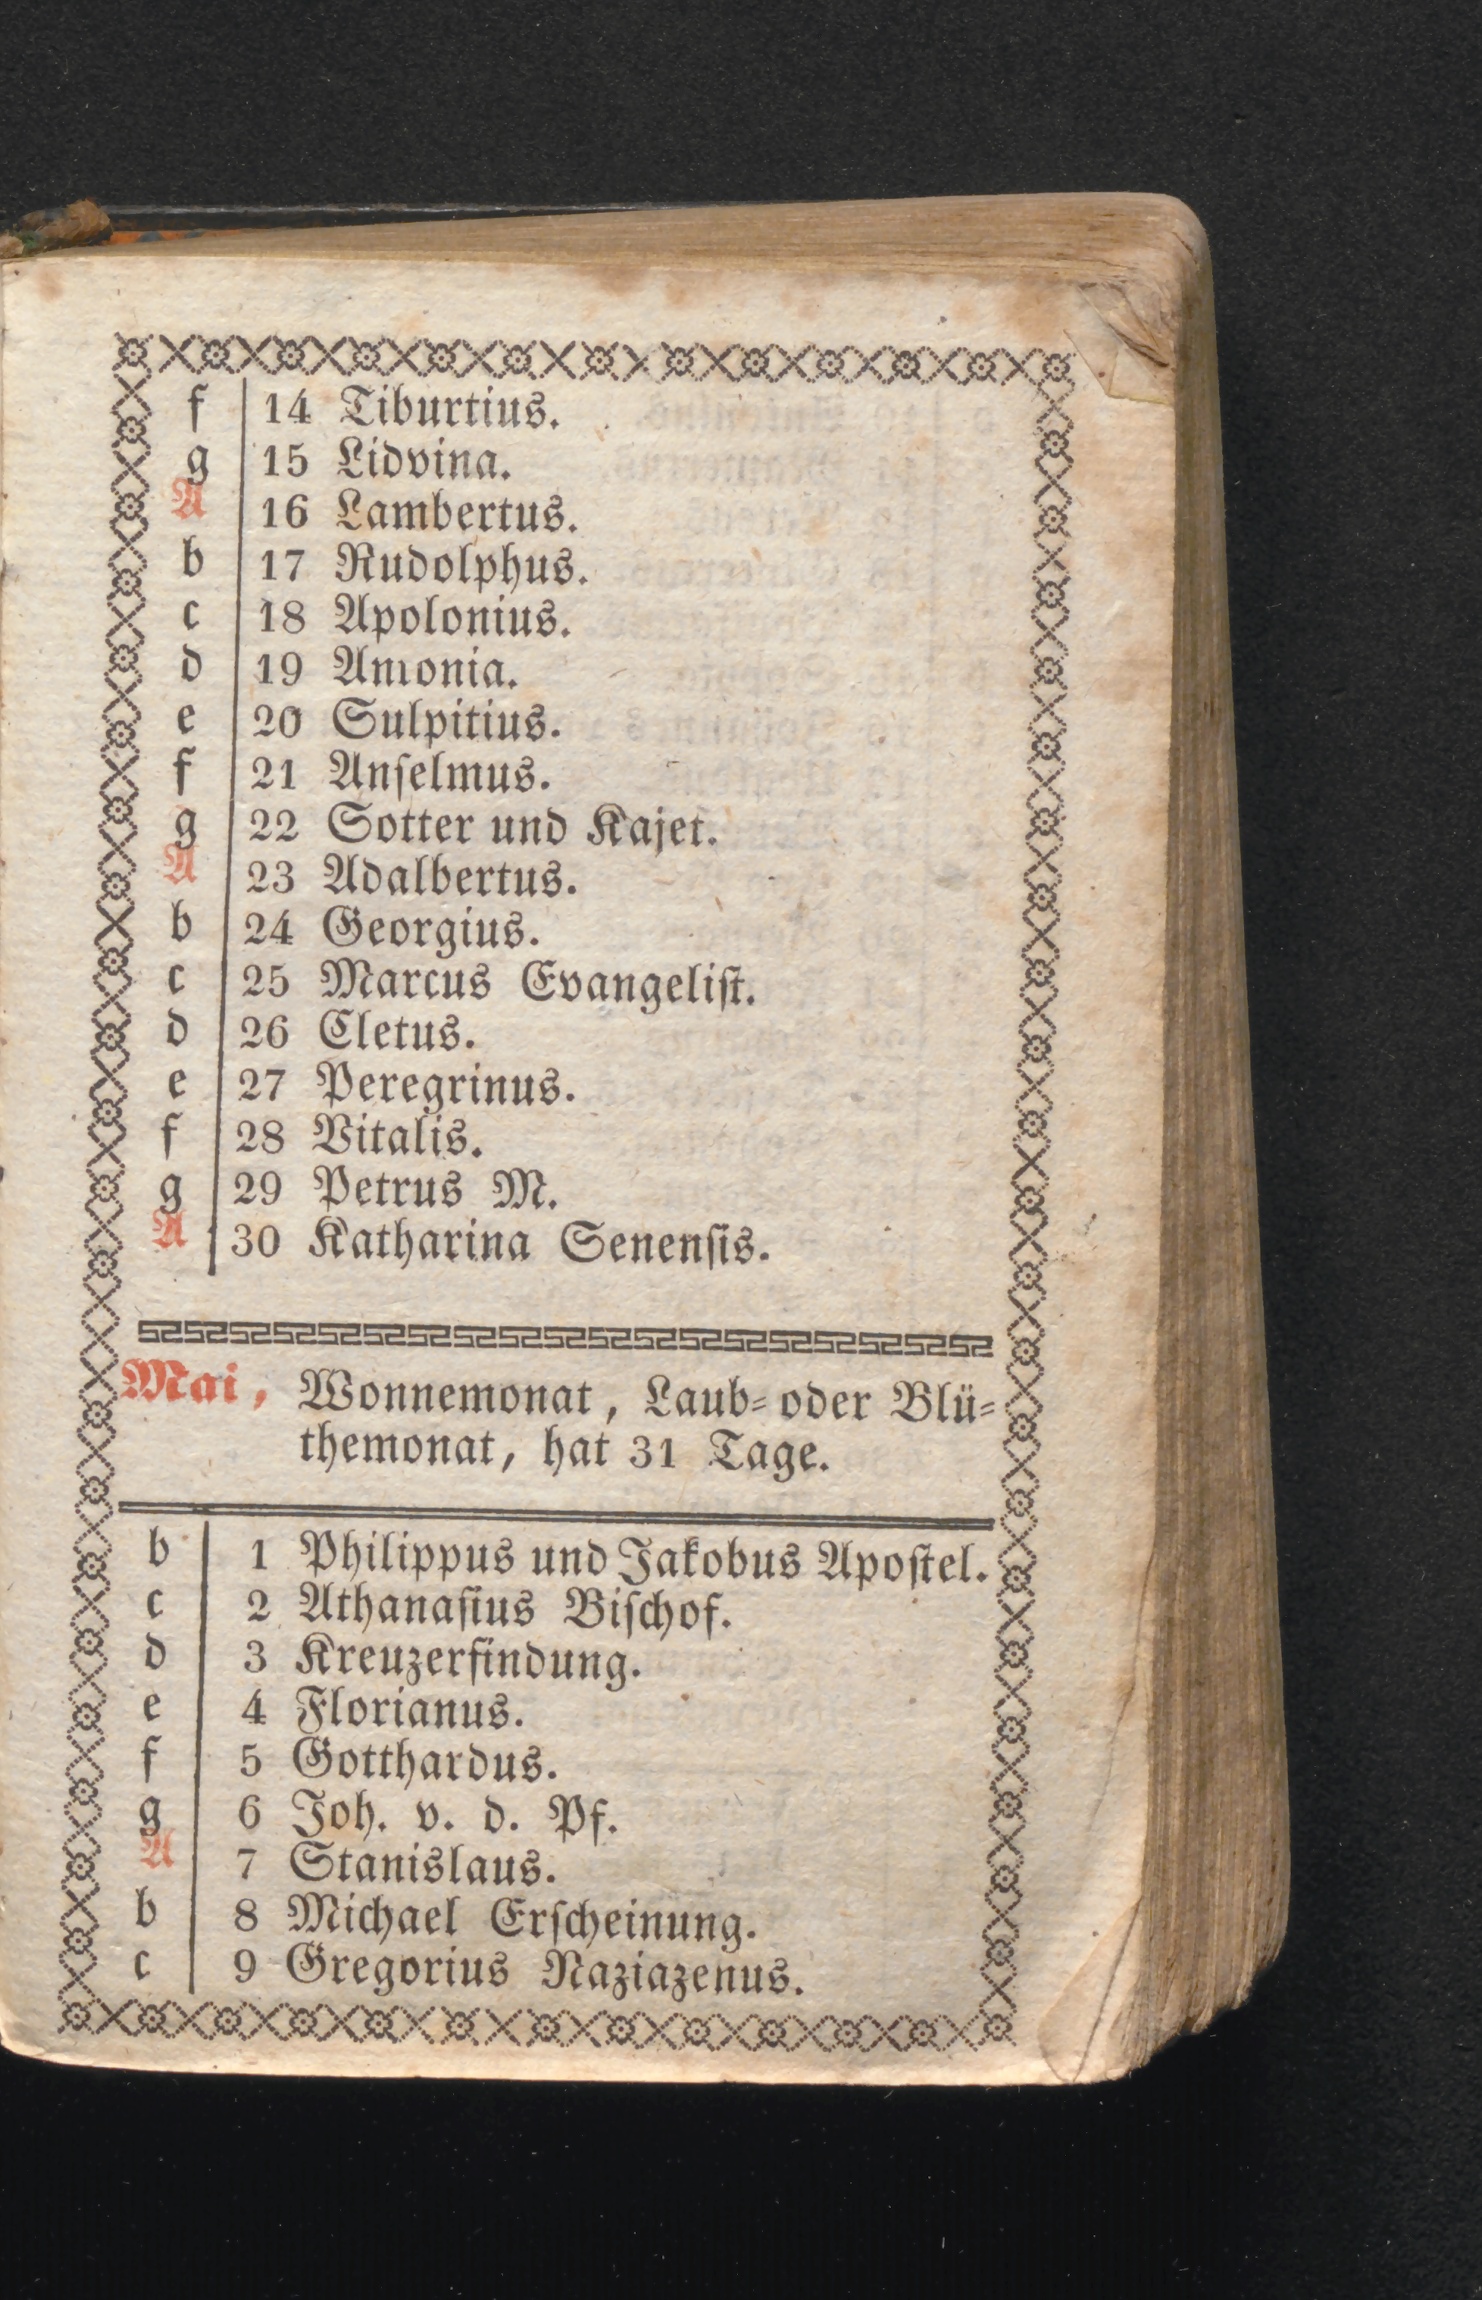 f 14 Tiburtius.
g 15 Lidvina.
A 16 Lambertus.
b 17 Rudolphus.
c 18 Apolonius.
d 19 Amonia.
e 20 Sulpitius.
f 21 Anſelmus.
g 22 Sotter und Kajet.
A 23 Adalbertus.
b 24 Georgius.
c 25 Marcus Evangeliſt.
d 26 Cletus.
e 27 Peregrinus.
f 28 Vitalis.
g 29 Petrus M.
A 30 Katharina Senenſis.
Mai, Wonnemonat, Laub- oder Blü-
themonat, hat 31 Tage.
b 1 Philippus und Jakobus Apoſtel.
c 2 Athanaſius Biſchof.
d 3 Kreuzerfindung.
e 4 Florianus.
f 5 Gotthardus.
g 6 Joh. v. d. Pf.
A 7 Stanislaus.
b 8 Michael Erſcheinung.
c 9 Gregorius Naziazenus.